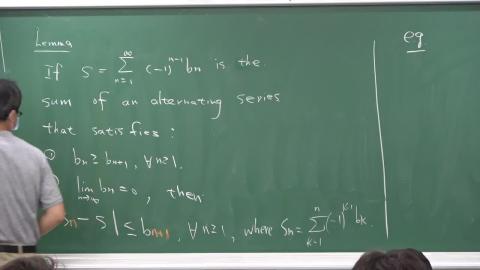 Lemma
If S = ∑_{n=1}^{∞} (-1)^{n-1} bn is the
sum of an alternating series
that satisfies :
① bn ≥ bn+1, ∀n≥1.
lim_{n→∞} bn = 0, then
Sn - S| ≤ bn+1, ∀n≥1, where Sn = ∑_{k=1}^{n} (-1)^{k-1} bk.
eg.